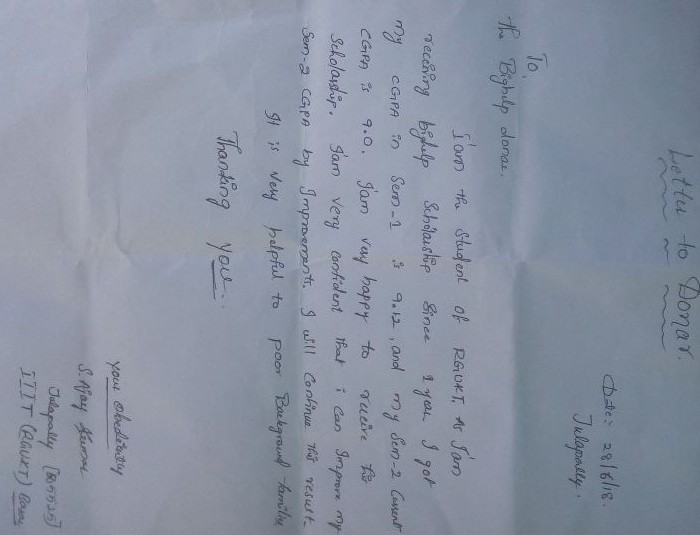 Letter to Donar.
Date: 28/6/18.
Julapally.
To,
The Bighelp donar.
I'am the student of RGUKT. As I'am
receiving bighelp Scholarship Since 2 year I got
my CGPA in Sem-1 is 9.12, and my Sem-2 Current
CGPA is 9.0. I'am very happy to receive this
Scholarship. I'am very confident that i can Improve my
Sem-2 CGPA by Improvements. I will continue this result.
It is very helpful to poor Background families
Thanking you...
your obediently
S. Ajay
Julapally
IIIT (RGUKT)